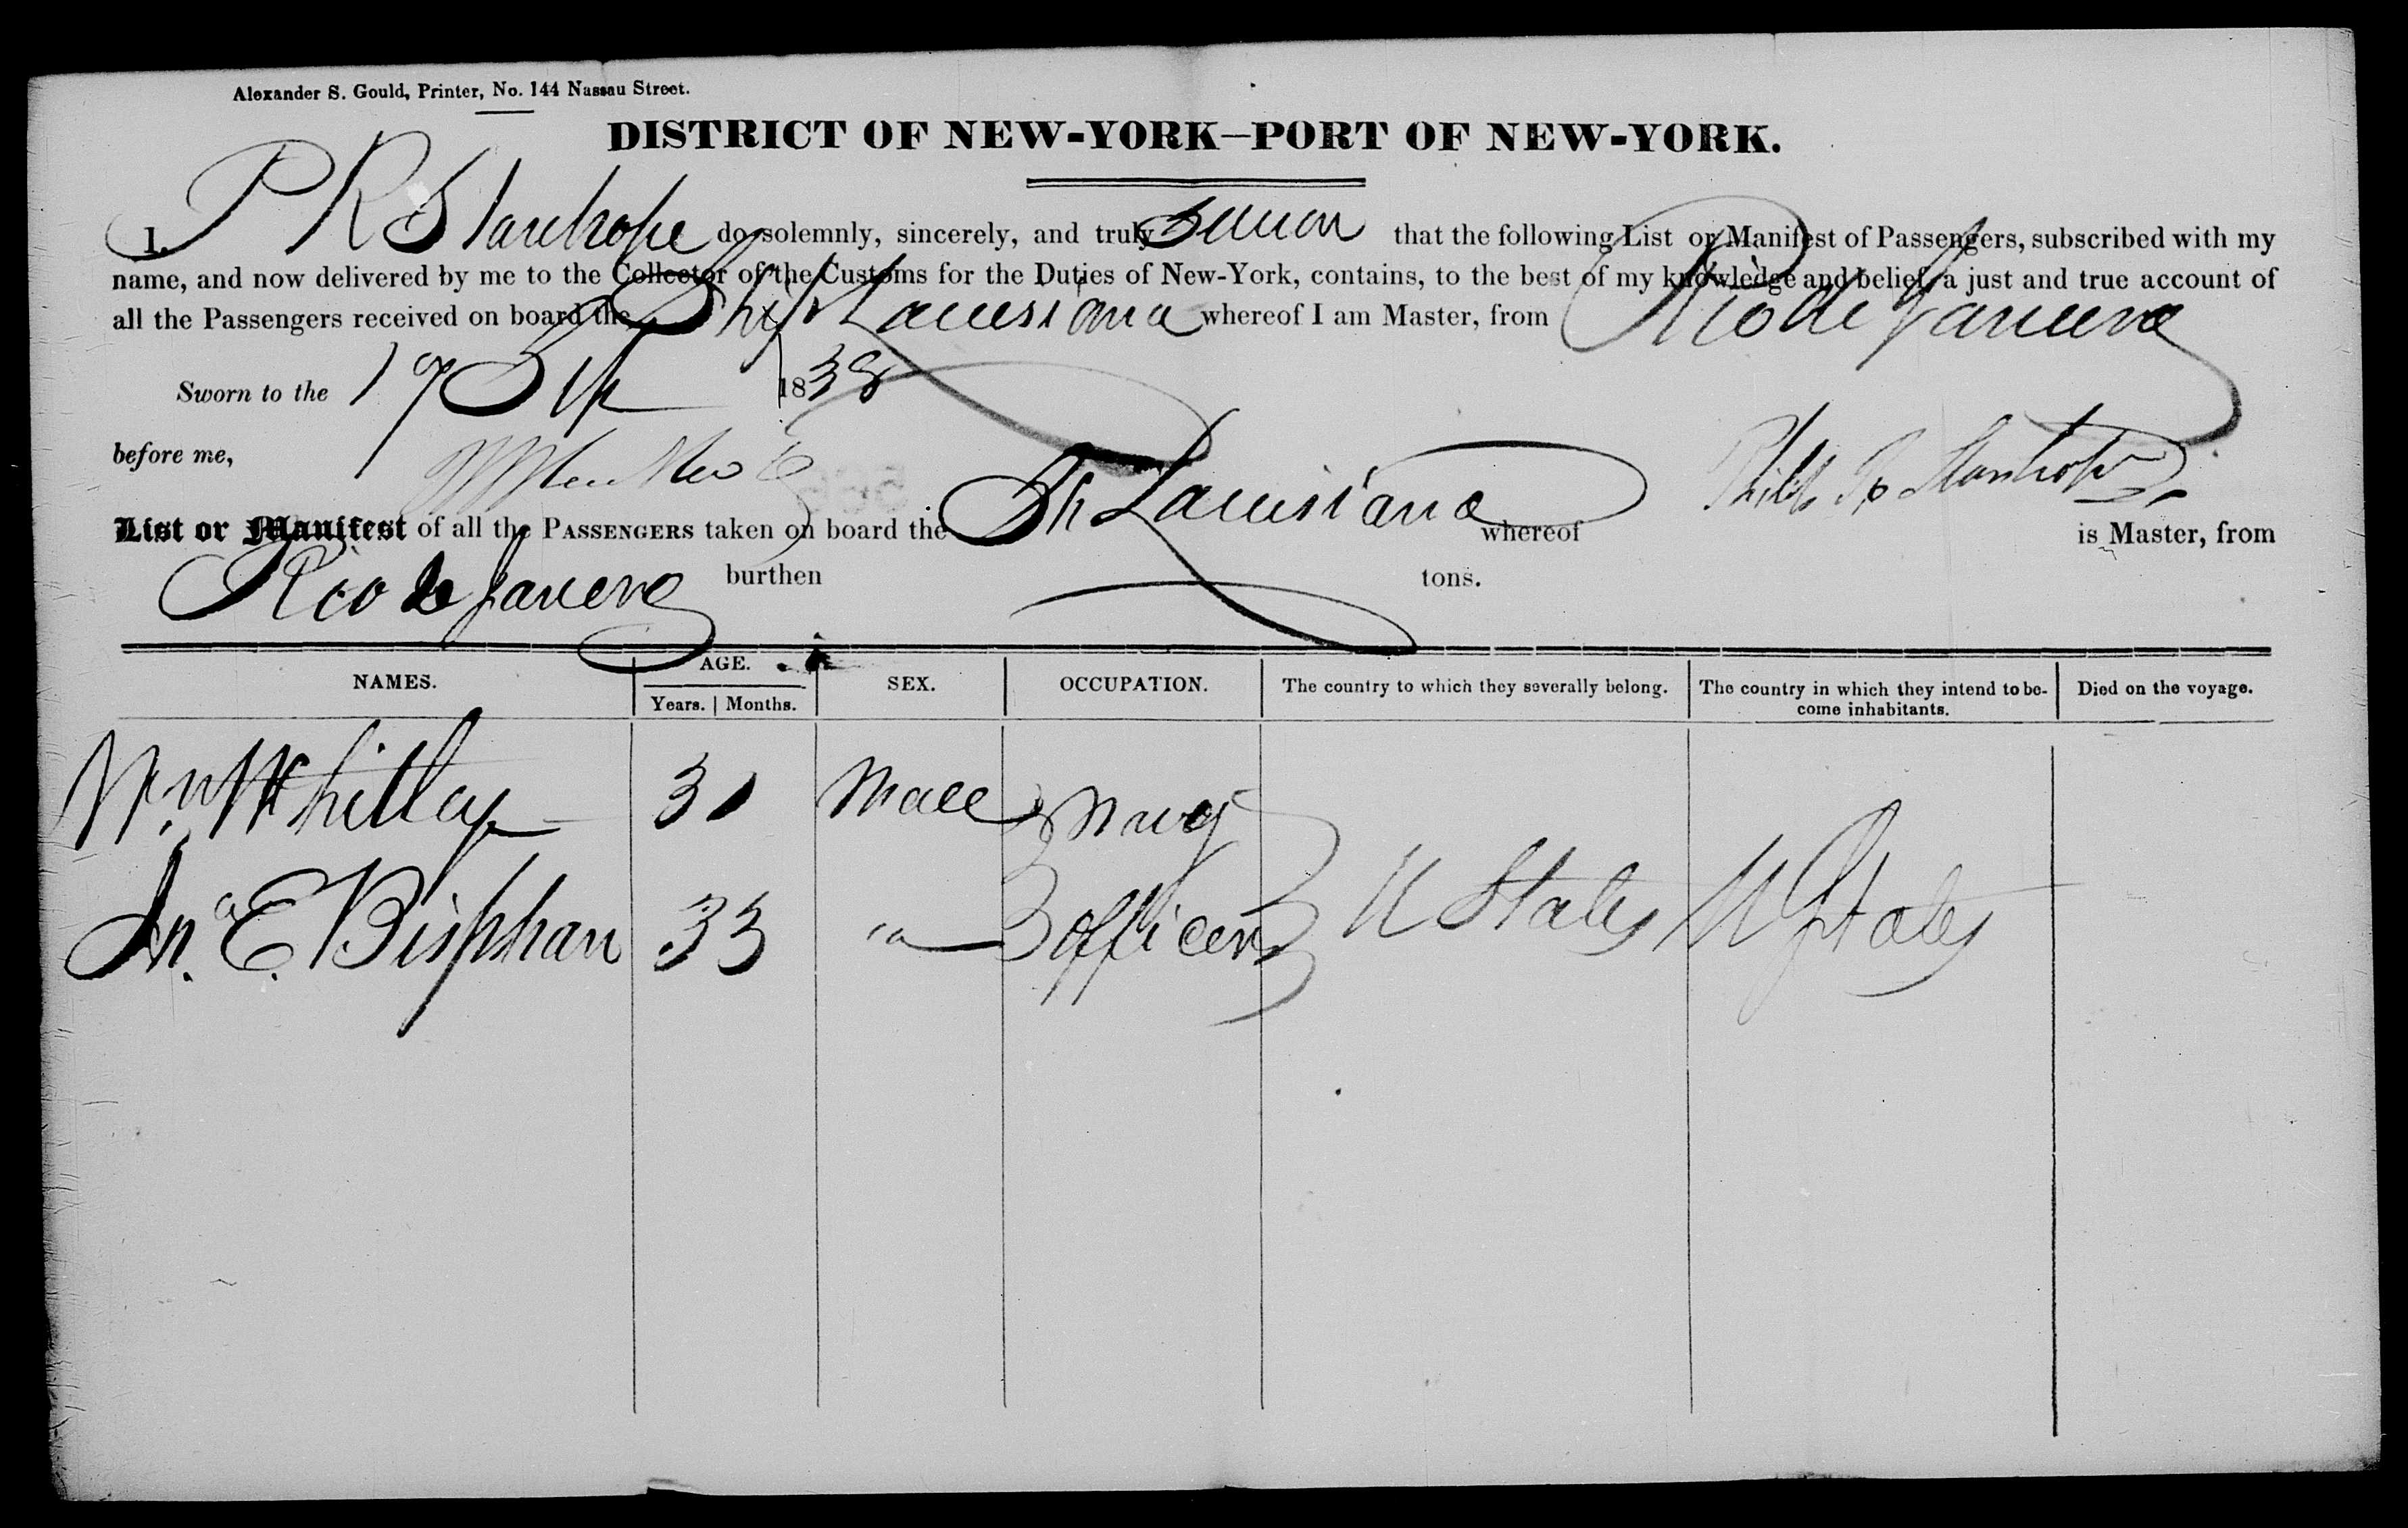 Alexander S. Gould, Printer, No. 144 Nassau Street.
DISTRICT OF NEW-YORK—PORT OF NEW-YORK.
I, P R Stanhope do solemnly, sincerely, and truly swear that the following List or Manifest of Passengers, subscribed with my
name, and now delivered by me to the Collector of the Customs for the Duties of New-York, contains, to the best of my knowledge and belief, a just and true account of
all the Passengers received on board the Ship Louisiana whereof I am Master, from Rio de Janeiro
Sworn to the 19 1838
before me,
Philip R Stanhope
List or Manifest of all the PASSENGERS taken on board the Sh Louisiana whereof is Master, from
Rio de Janeiro burthen tons.
NAMES. AGE. SEX. OCCUPATION. The country to which they severally belong. The country in which they intend to be-come inhabitants. Died on the voyage.
Years. Months.
Wm Whittey 31 Male Navy
Jno E. Bisphan 33 " officers U States U States